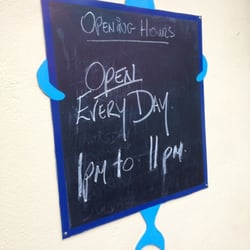 OPENING HOURS
OPEN
EVERY DAY.
1pm to 11pm.